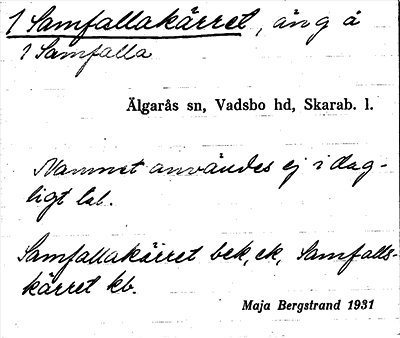 1 Samfallakärret, äng å
1 Samfalla
Älgarås sn, Vadsbo hd, Skarab. l.
Namnet användes ej i dag-
ligt tal.
Samfallakärret bek, ek, Samfalls-
kärret kb.
Maja Bergstrand 1931